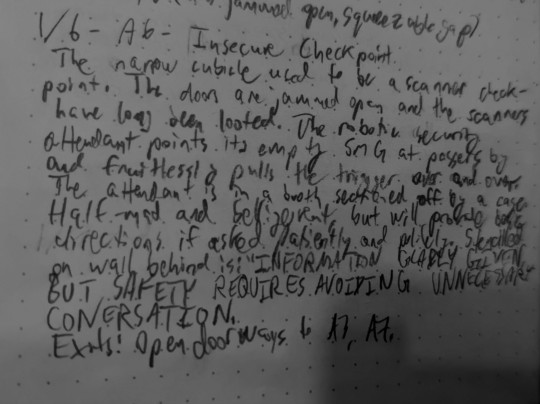 jammed open, squeezable gap)
1/6 - A6 - Insecure Checkpoint
The narrow cubicle used to be a scanner check-
point. The doors are jammed open and the scanners
have long been looted. The robotic security
attendant points its empty SMG at passers by
and fruitlessly pulls the trigger over and over.
The attendant is in a booth sectioned off by a cage
Half-mad and belligerent, but will probably
directions if asked patiently and politely. Stenciled
on wall behind is: "INFORMATION GLADLY GIVEN
BUT SAFETY REQUIRES AVOIDING UNNECESSARY
CONERSATION.
Exits: Open doorways to A7.